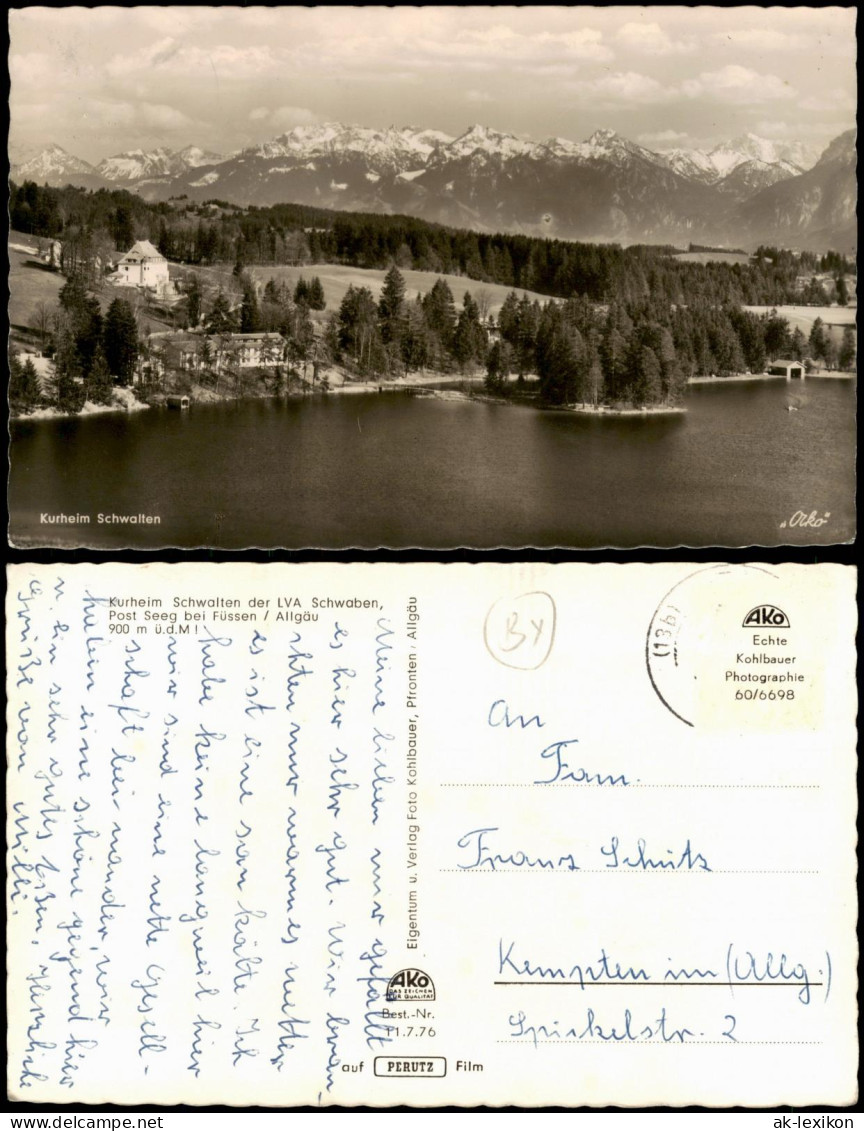 Kurheim Schwalten
„Orko“
Kurheim Schwalten der LVA Schwaben,
Post Seeg bei Füssen / Allgäu
900 m ü.d.M!
Meine lieben mir gefällt
es hier sehr gut. Wir brau-
chten nur warmes wetter
es ist eine sau kälte. Ich
habe keine langweil hier
wir sind eine nette Gesell-
schaft bei nander, wir
haben eine schöne gegend hier
u. ein sehr gutes Essen. Herzliche
Grüße von Milli.
Eigentum u. Verlag Foto Kohlbauer, Pfronten / Allgäu
AKO
DAS ZEICHEN
FÜR QUALITÄT
Best.-Nr.
11.7.76
auf PERUTZ Film
BY
(13b)
AKO
Echte
Kohlbauer
Photographie
60/6698
An
Fam.
Franz Schütz
Kempten im (Allg.)
Spickelstr. 2
DELCAMPE
ak-lexikon